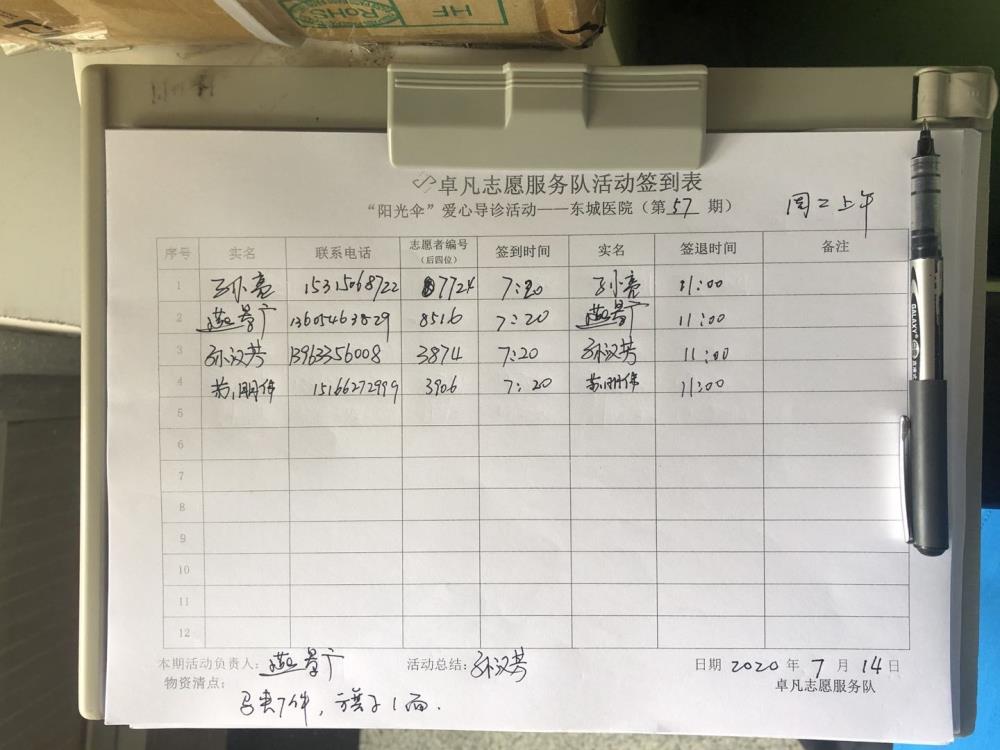 HF
RoHS
卓凡志愿服务队活动签到表
“阳光伞”爱心导诊活动——东城医院（第57期） 周二上午
序号 实名 联系电话 志愿者编号（后四位） 签到时间 实名 签退时间 备注
1 孙亮 15315068722 7724 7:20 孙亮 11:00
2 燕景广 13605463829 8516 7:20 燕景广 11:00
3 孙汉芳 13963356008 3874 7:20 孙汉芳 11:00
4 苏明伟 15166272999 3906 7:20 苏明伟 11:00
5
6
7
8
9
10
11
12
本期活动负责人：燕景广 活动总结：孙汉芳 日期 2020 年 7 月 14 日
物资清点： 卓凡志愿服务队
马夹7件，旗子1面.
GALAXY